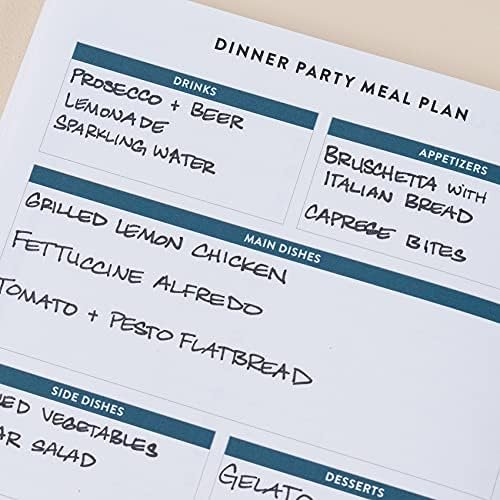 DINNER PARTY MEAL PLAN
DRINKS
PROSECCO + BEER
LEMONADE
SPARKLING WATER
APPETIZERS
BRUSCHETTA WITH
ITALIAN BREAD
CAPRESE BITES
MAIN DISHES
GRILLED LEMON CHICKEN
FETTUCCINE ALFREDO
TOMATO + PESTO FLATBREAD
SIDE DISHES
VEGETABLES
SALAD
DESSERTS
GELATO